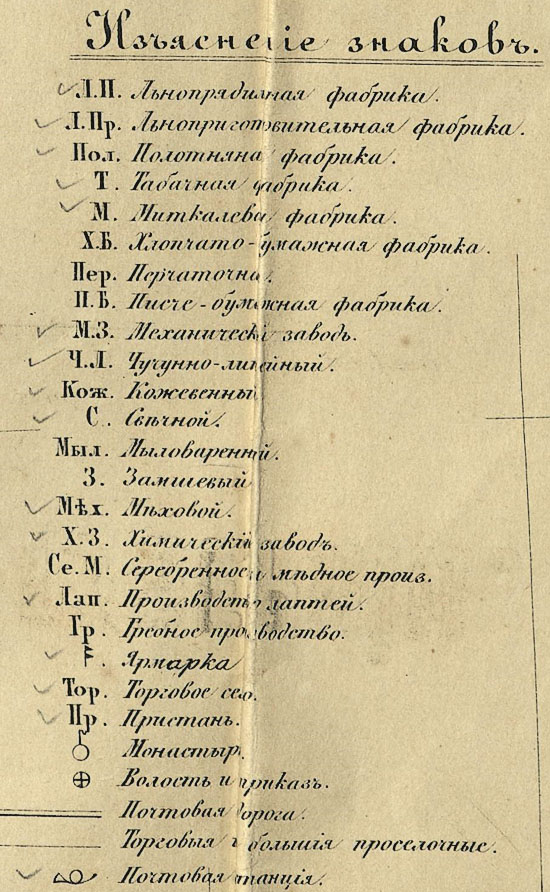 Изъясненіе знаковъ.
Л.П. Льнопрядильная фабрика.
Л.Пр. Льноприготовительная фабрика.
Пол. Полотняная фабрика.
Т. Табачная фабрика.
М. Миткалева фабрика.
Х.Б. Хлопчато-бумажная фабрика.
Пер. Перчаточная.
П.Б. Писче-бумажная фабрика.
М.З. Механическій заводъ.
Ч.Л. Чугунно-литейный.
Кож. Кожевенный
С. Свѣчной.
Мыл. Мыловаренный.
З. Замшевый
Мѣх. Мѣховой.
Х.З. Химическій заводъ.
Се.М. Серебренное и мѣдное произ.
Лап. Производство лаптей.
Гр. Гребное производство.
Ярмарка
Тор. Торговое село.
Пр. Пристань.
Монастырь.
Волость и приказъ.
Почтовая дорога.
Торговыя и большія проселочные.
Почтовая станція.